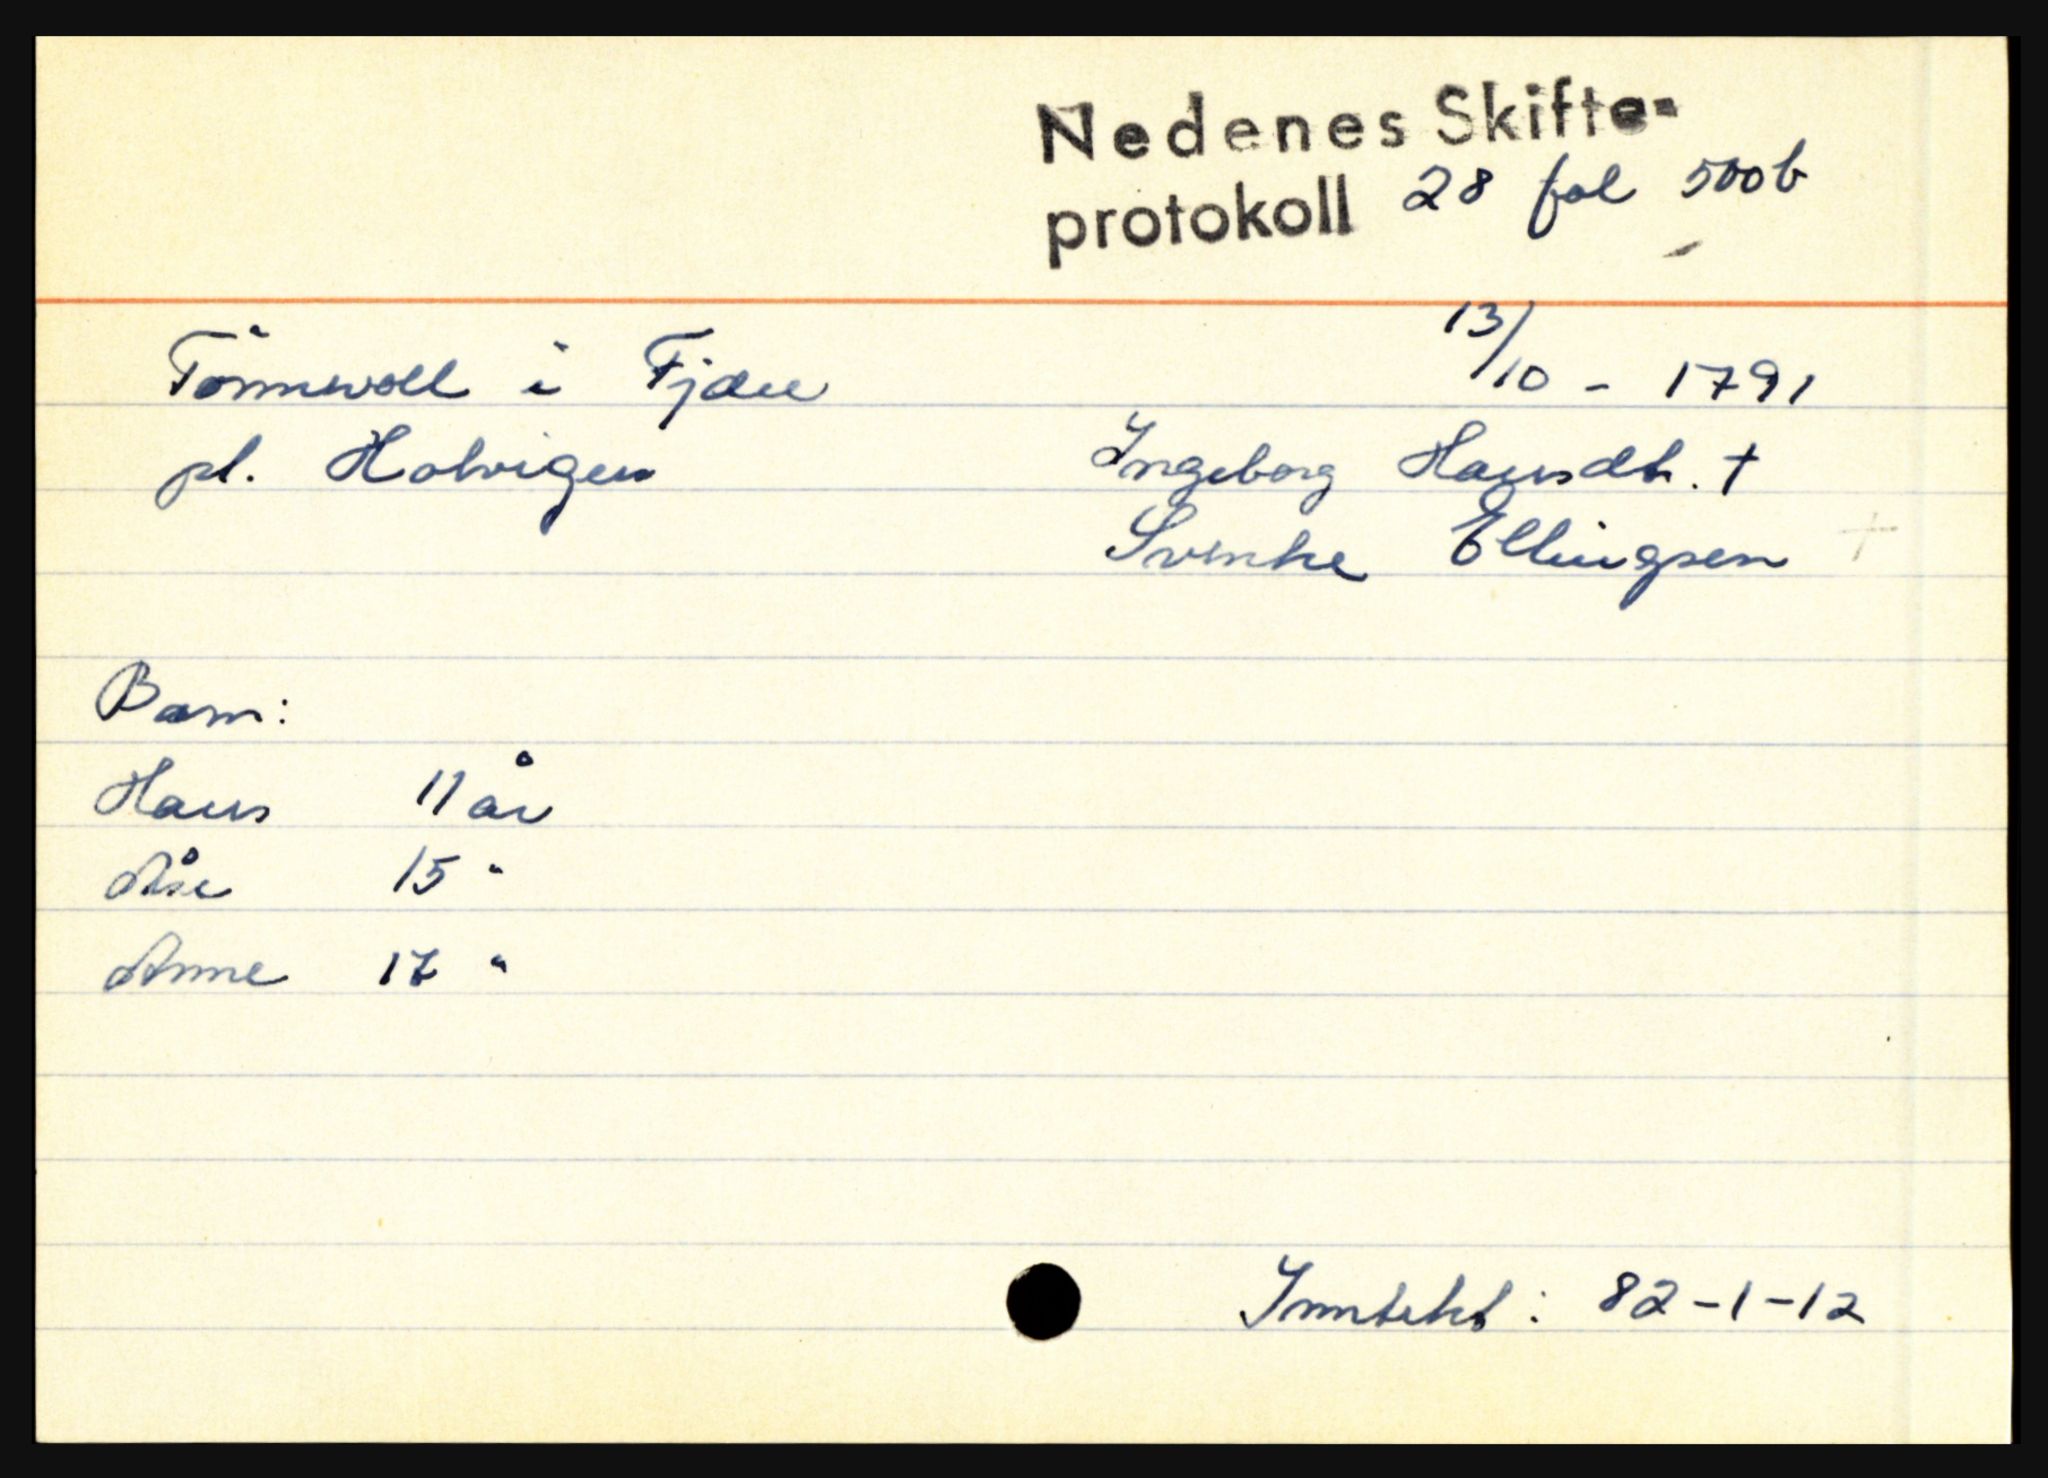 Nedenes Skifte=
protokoll 28 fol 500b
Tønnevoll i Fjære
13/10 - 1791
pl. Holvigen
Ingeborg Hansdtr. †
Svenke Ellingsen
Barn:
Hans 11 år
Åse 15 "
Anne 17 "
Inntekt: 82-1-12